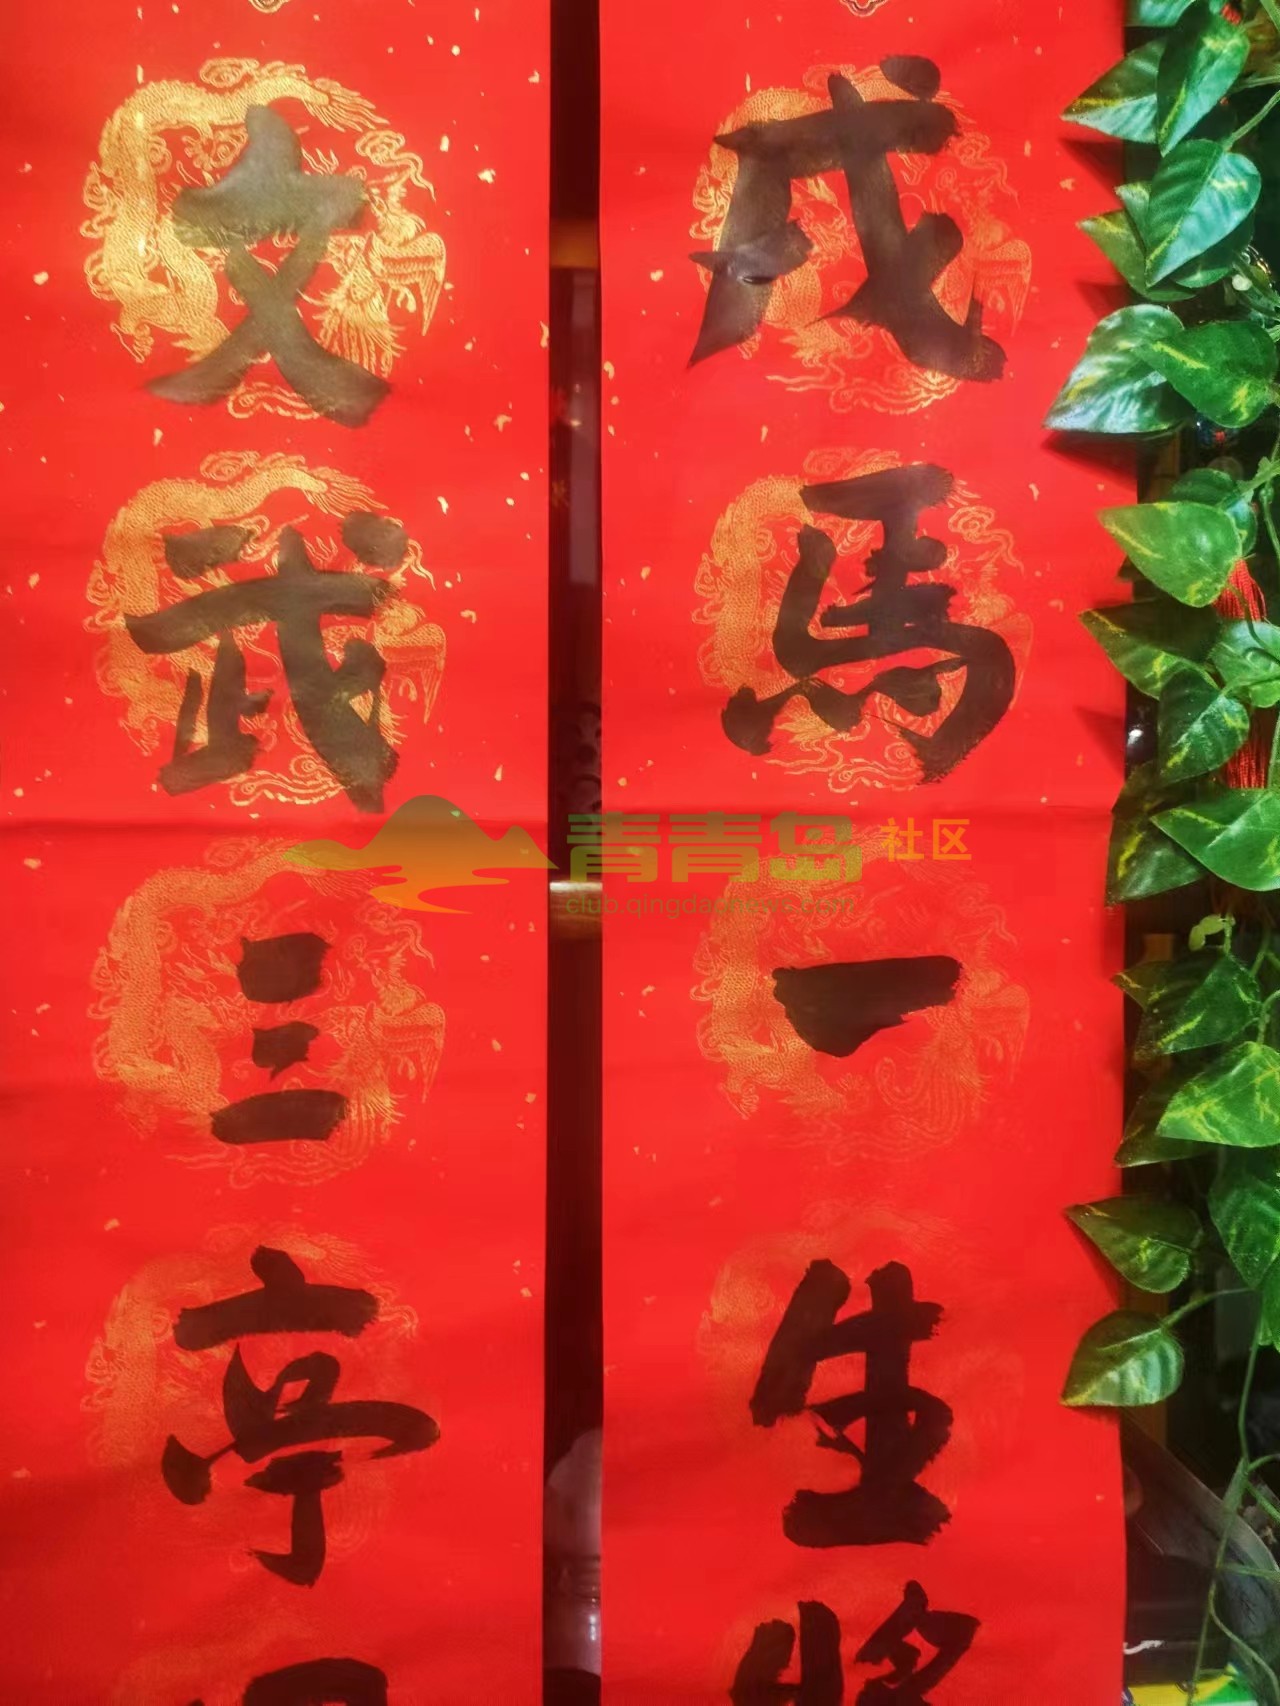 戍馬一生將
文武三亭
青青岛社区
club.qingdaonews.com